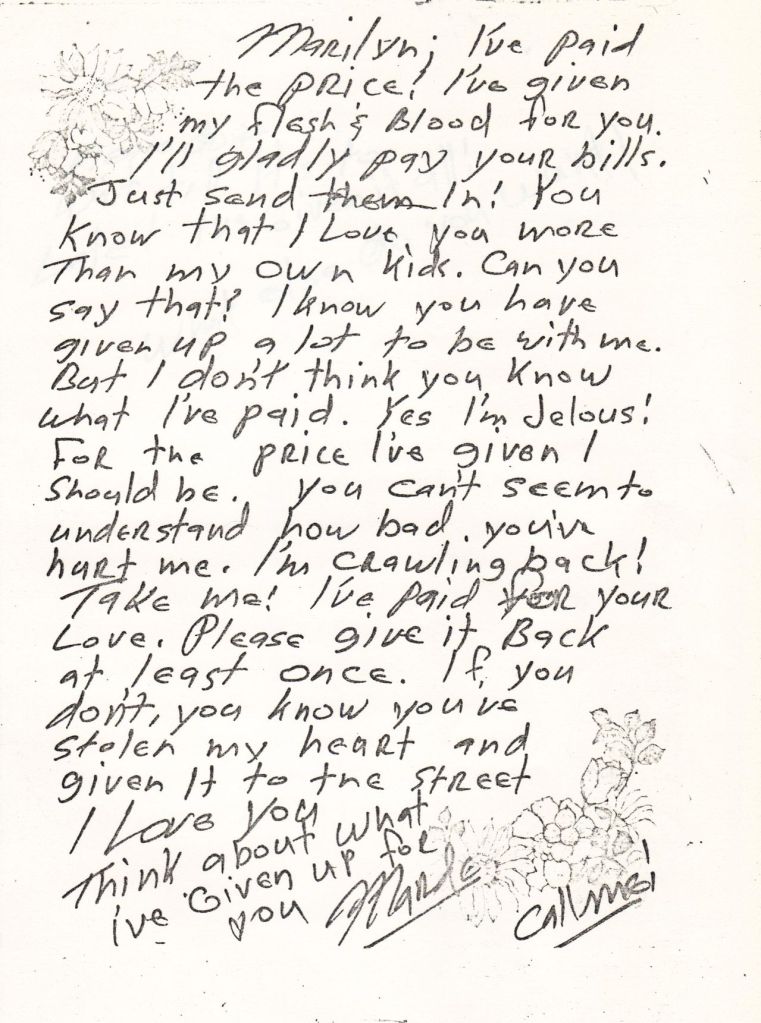 Marilyn; I've paid
the price! I've given
my flesh & Blood for you.
I'll gladly pay your bills.
Just send them In! You
Know that I Love you more
Than my own kids. Can you
say that? I know you have
given up a lot to be with me.
But I don't think you know
what I've paid. Yes I'm Jelous!
For the price I've given I
should be. You can't seem to
understand how bad you've
hurt me. I'm crawling back!
Take me! I've paid for your
Love. Please give it Back
at least once. If you
don't, you know you've
stolen my heart and
given It to the street
I Love you
Think about what
i've Given up for
you
Call me!